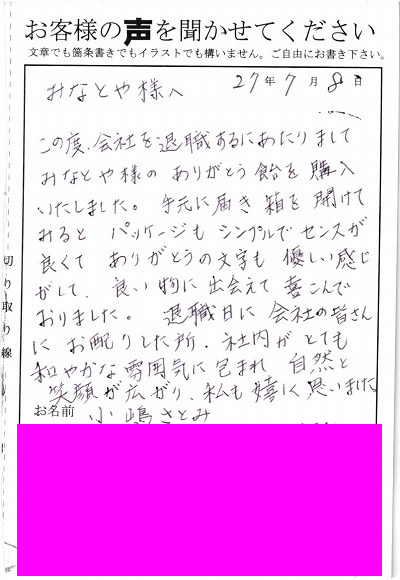 お客様の声を聞かせてください
文章でも箇条書きでもイラストでも構いません。ご自由にお書き下さい。
27年7月8日
みなとや様へ
この度、会社を退職するにあたりまして
みなとや様の ありがとう飴を購入
いたしました。手元に届き箱を開けて
みると パッケージも シンプルでセンスが
良くて ありがとうの文字も 優しい感じ
がして、良い物に出会えて喜こんで
おりました。 退職日に会社の皆さん
にお配りした所、社内がとても
和やかな雰囲気に包まれ 自然と
笑顔が広がり、私も嬉しく思いました
お名前
小嶋さとみ
切り取り線